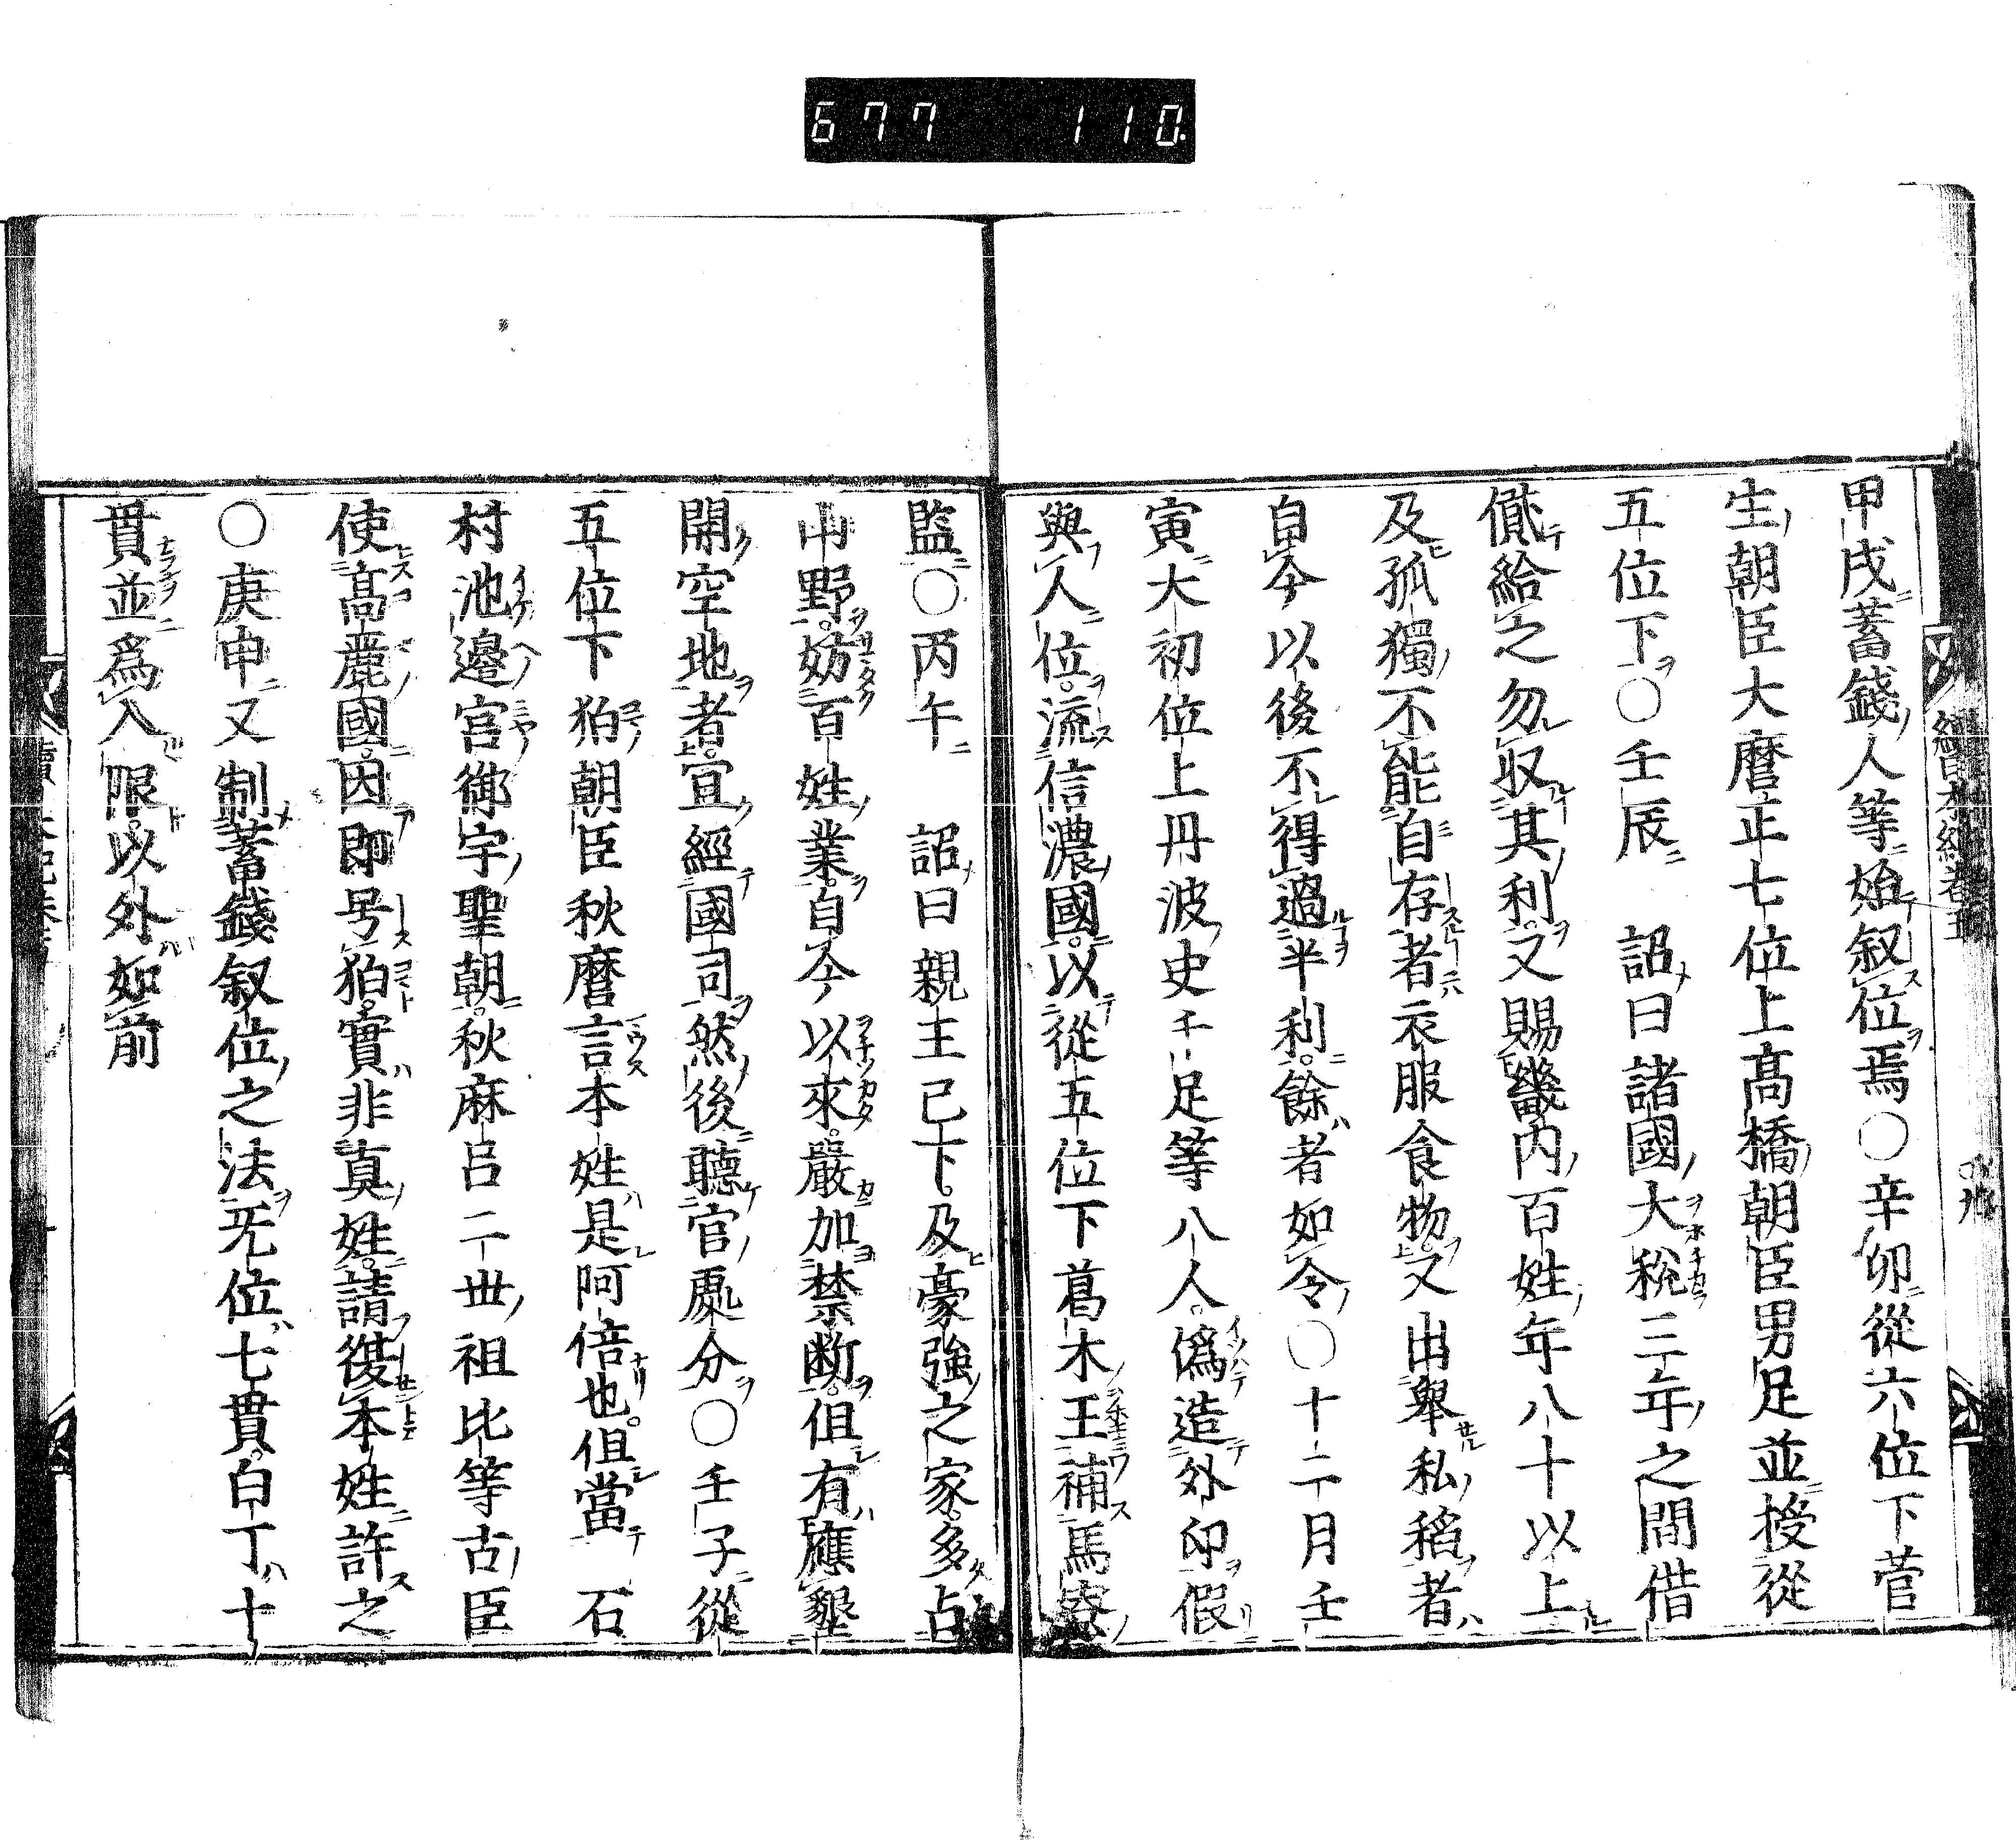 677 110.
甲戌蓄錢人等始叙位焉○辛卯從六位下菅
生朝臣大麿正七位上髙橋朝臣男足並授從
五位下○壬辰 詔曰諸國大稅三年之間借
貸給之勿収其利又賜畿内百姓年八十以上
及孤獨不能自存者衣服食物又出舉私稻者
自今以後不得過半利餘者如令○十二月壬
寅大初位上丹波史千足等八人僞造外印假
與人位流信濃國以從五位下葛木王補馬寮
監○丙午 詔曰親王已下及豪強之家多占
山野妨百姓業自今以來嚴加禁断但有應墾
開空地者宜經國司然後聽官處分○壬子從
五位下狛朝臣秋麿言本姓是阿倍也但當石
村池邊宮御宇聖朝秋麻呂二丗祖比等古臣
使髙麗國因即号狛實非真姓請復本姓許之
○庚申又制蓄錢叙位之法无位七貫白丁十
貫並爲入限以外如前